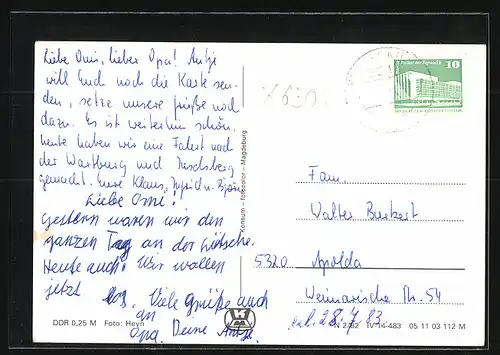 Liebe Omi, lieber Opa! Antje
will Euch noch die Karte sen-
den, setze unsere Grüße noch
dazu. Es ist weiterhin schön,
heute haben wir eine Fahrt nach
der Wartburg und Inselsberg
gemacht. Eure Klaus, Sigrid u. Björn
Liebe Omi!
Gestern waren wir den
ganzen Tag an der
Heute auch. Wir wollen
jetzt los. Viele Grüße auch
an
Opa. Deine Antje.
DDR 0,25 M Foto: Heyn
Konsum-fotocolor-Magdeburg
10
Palast der Republik
Fam.
Walter Burkert
5320 Apolda
Weimarische Str. 54
N 2/82 IV-14-483 05 11 03 112 M
28.7.83